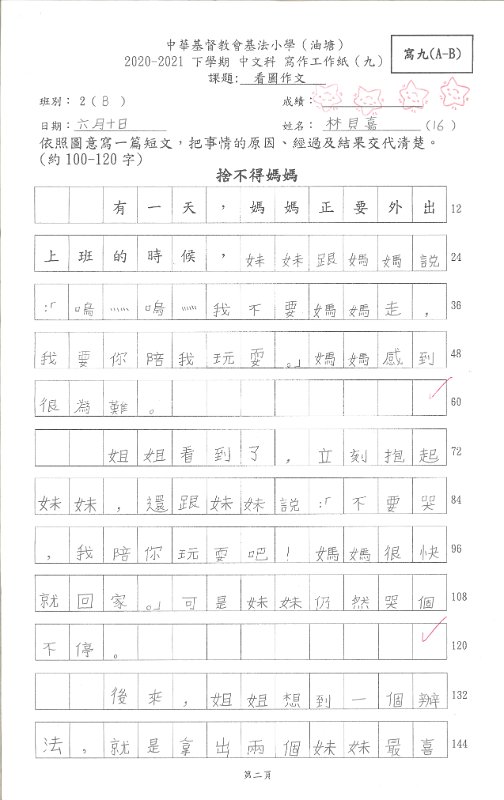 中華基督教會基法小學（油塘）
寫九(A-B)
2020-2021 下學期 中文科 寫作工作紙（九）
課題: 看圖作文
班別：2（B） 成績：
日期：六月十日 姓名：林貝嘉（16）
依照圖意寫一篇短文，把事情的原因、經過及結果交代清楚。
(約100-120字)
捨不得媽媽
有一天，媽媽正要外出 12
上班的時候，妹妹跟媽媽說 24
：「嗚……嗚……我不要媽媽走， 36
我要你陪我玩耍。」媽媽感到 48
很為難。 60
姐姐看到了，立刻抱起 72
妹妹，還跟妹妹說：「不要哭 84
，我陪你玩耍吧！媽媽很快 96
就回家。」可是妹妹仍然哭個 108
不停。 120
後來，姐姐想到一個辦 132
法，就是拿出兩個妹妹最喜 144
第二頁